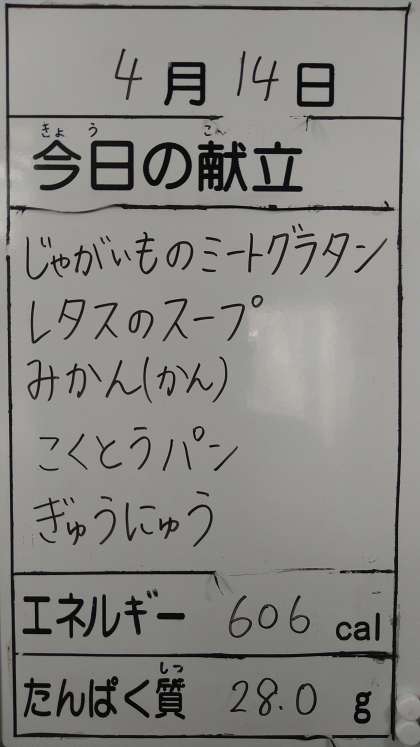 4月14日
きょう こん
今日の献立
じゃがいものミートグラタン
レタスのスープ
みかん(かん)
こくとうパン
ぎゅうにゅう
エネルギー 606 cal
しつ
たんぱく質 28.0 g